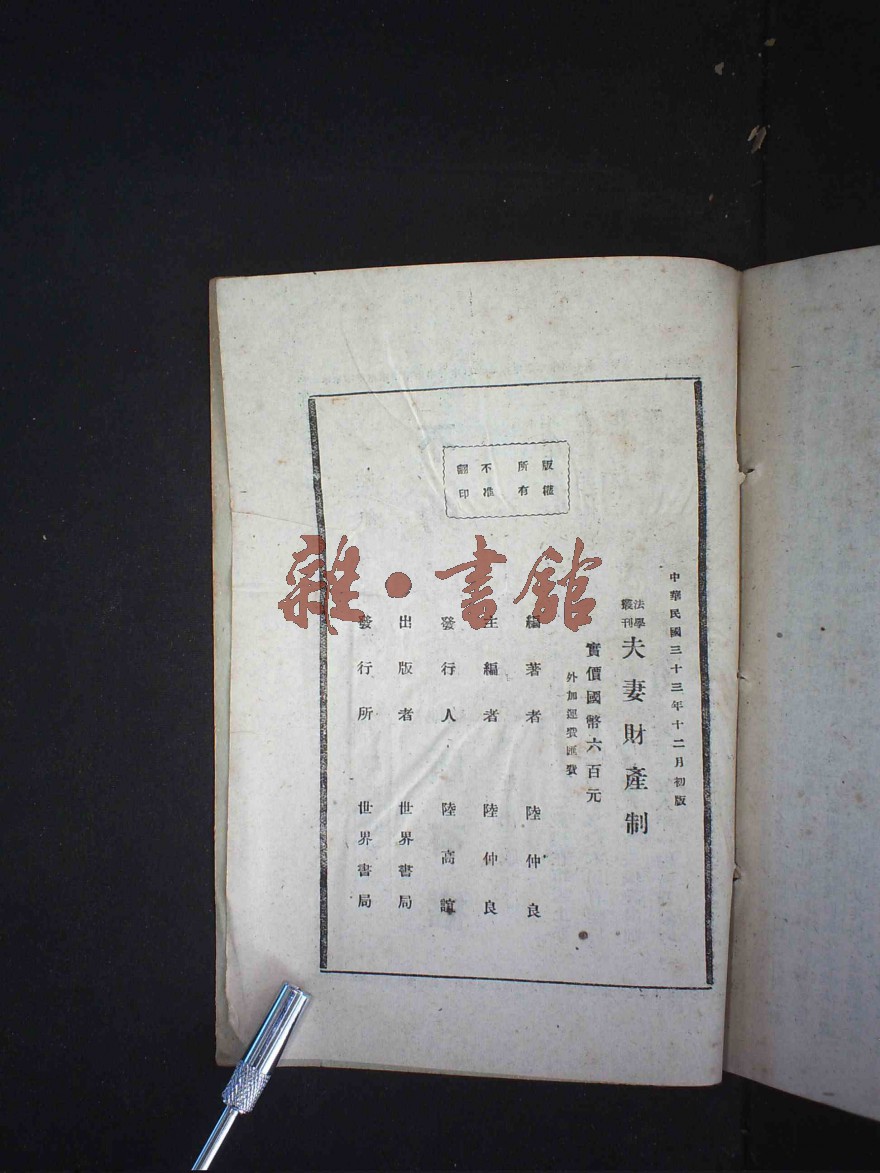 中華民國三十三年十二月初版
法學叢刊 夫妻財產制
實價國幣六百元
外加運費匯費
版權所有
不准翻印
編著者 陸仲良
主編者 陸仲良
發行人 陸高誼
出版者 世界書局
發行所 世界書局
雜·書館